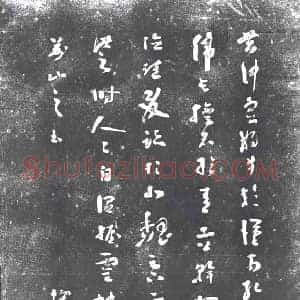 昔仲宣獨步於漢南孔
偉長擅名於青土公幹
德璉發跡於此魏足
此之時人人自謂握靈蛇
荊山之玉
Shufaziliao.com